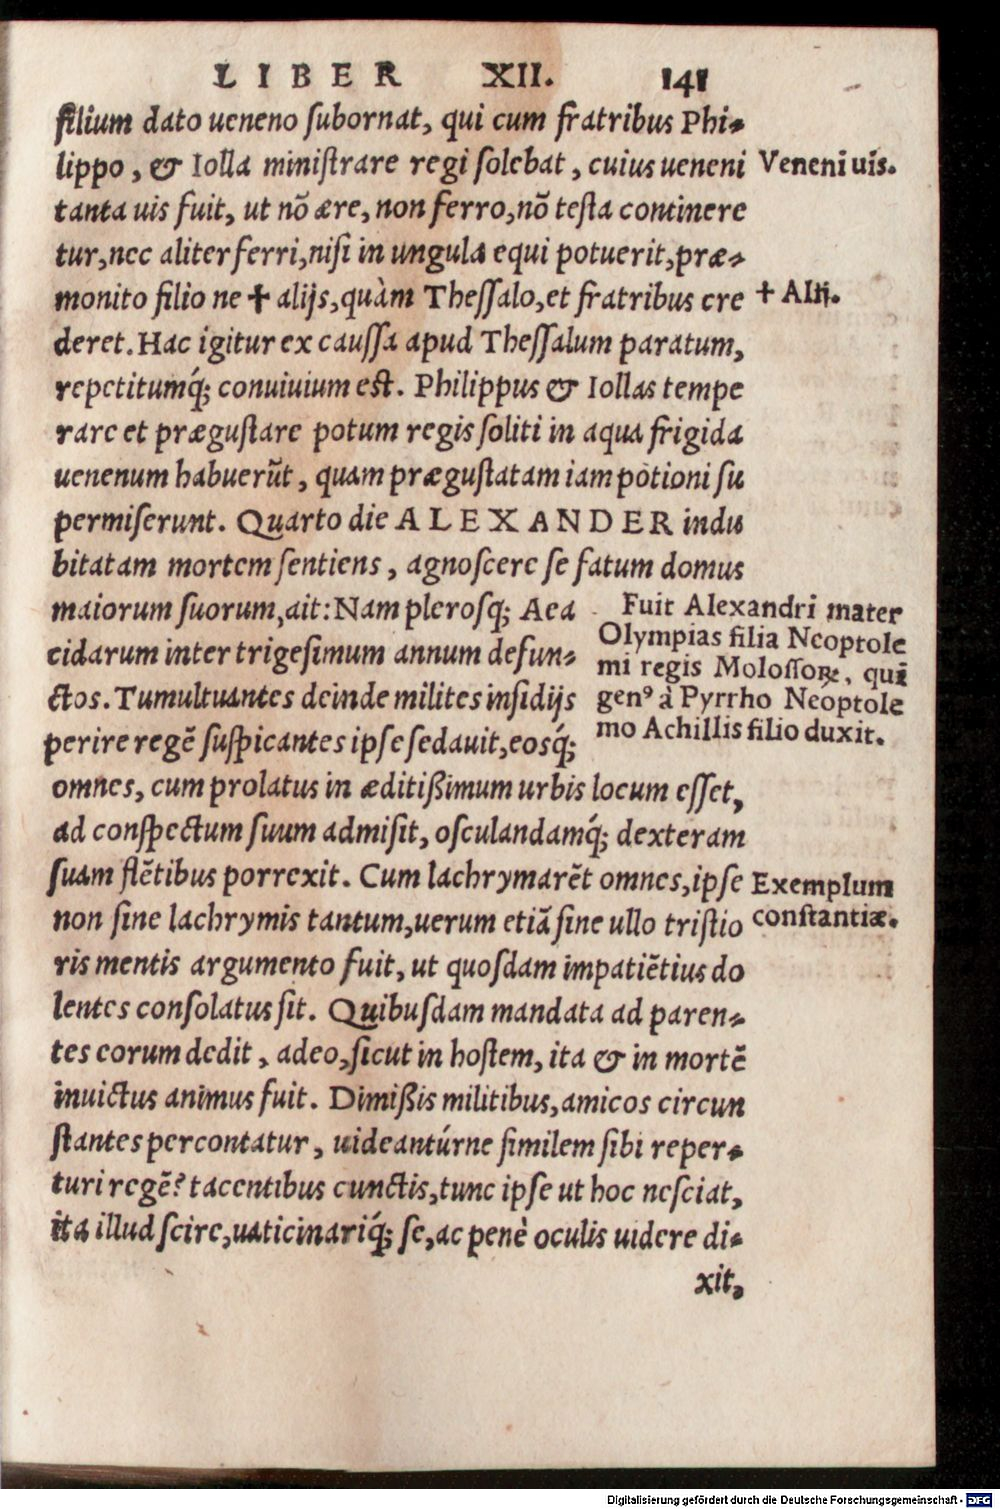 LIBER XII. 141
filium dato ueneno subornat, qui cum fratribus Phi-
lippo, & Iolla ministrare regi solebat, cuius ueneni
Veneni uis.
tanta uis fuit, ut nõ ære, non ferro, nõ testa contínere
tur, nec aliter ferri, nisi in ungula equi potuerit, præ-
monito filio ne ✝ alijs, quàm Thessalo, et fratribus cre
✝ Alij.
deret. Hac igitur ex caussa apud Thessalum paratum,
repetitumq́; conuiuium est. Philippus & Iollas tempe
rare et prægustare potum regis soliti in aqua frigida
uenenum habuerũt, quam prægustatam iam potioni su
permiserunt. Quarto die ALEXANDER indu
bitatam mortem sentiens, agnoscere se fatum domus
maiorum suorum, ait: Nam plerosq; Aea
cidarum inter trigesimum annum defun-
ctos. Tumultuantes deinde milites insidijs
perire regẽ suspicantes ipse sedauit, eosq́;
Fuit Alexandri mater
Olympias filia Neoptole
mi regis Molossoꝝ, qui
genꝰ à Pyrrho Neoptole
mo Achillis filio duxit.
omnes, cum prolatus in æditißimum urbis locum esset,
ad conspectum suum admisit, osculandamq́; dexteram
suam flẽtibus porrexit. Cum lachrymarẽt omnes, ipse
Exemplum
non sine lachrymis tantum, uerum etiã sine ullo tristio
constantiæ.
ris mentis argumento fuit, ut quosdam impatiẽtius do
lentes consolatus sit. Quibusdam mandata ad paren-
tes eorum dedit, adeo, sicut in hostem, ita & in mortẽ
inuictus animus fuit. Dimißis militibus, amicos circun
stantes percontatur, uideantúrne similem sibi reper-
turi regẽ? tacentibus cunctis, tunc ipse ut hoc nesciat,
ita illud scire, uaticinariq́; se, ac penè oculis uidere di-
xit,
Digitalisierung gefördert durch die Deutsche Forschungsgemeinschaft - DFG